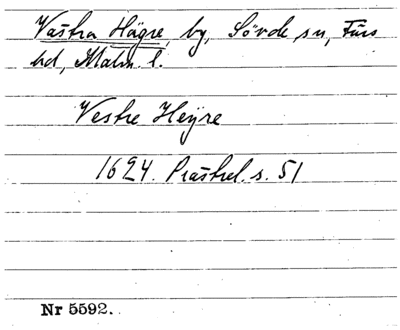 Västra Högre, by, Sövde sn, Färs
hd, Malm. l.
Vestre Heyre
1624. Prästrel. s. 51
Nr 5592.